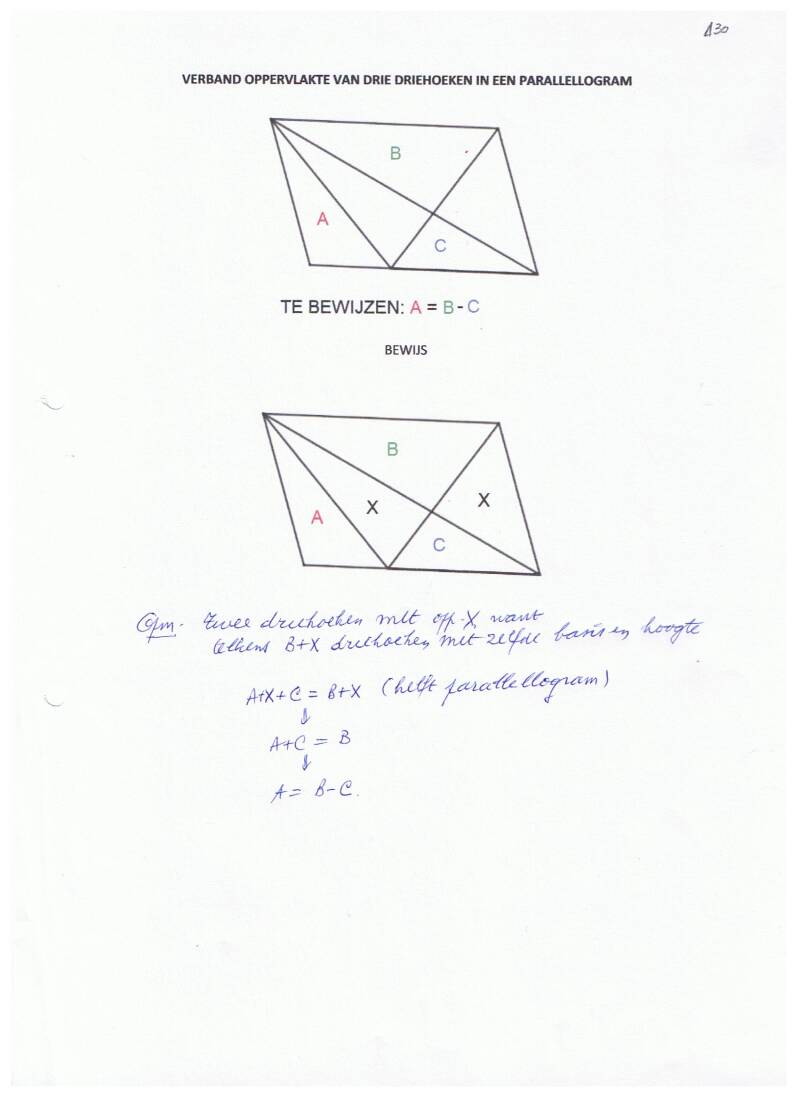 130
VERBAND OPPERVLAKTE VAN DRIE DRIEHOEKEN IN EEN PARALLELLOGRAM
B
A
C
TE BEWIJZEN: A = B - C
BEWIJS
B
X
X
A
C
Opm. Twee driehoeken met opp. X, want
telkens B+X driehoeken met zelfde basis en hoogte
A+X+C = B+X (helft parallellogram)
⇓
A+C = B
⇓
A = B-C.